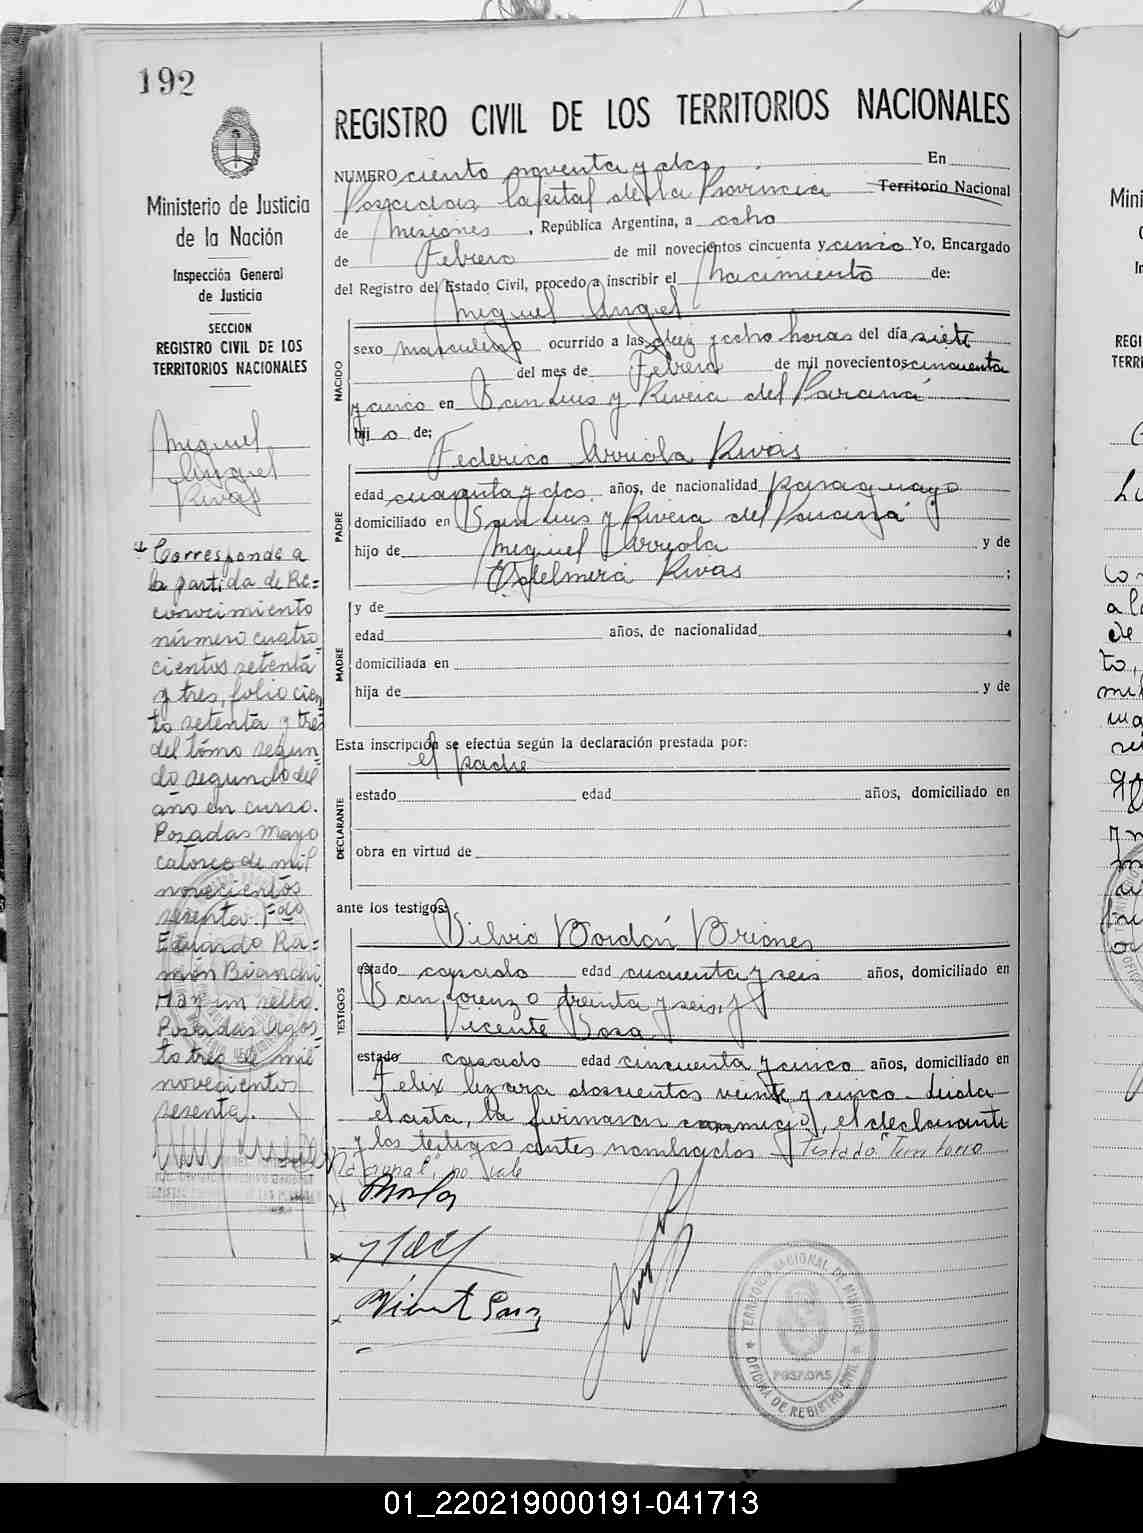 192
REGISTRO CIVIL DE LOS TERRITORIOS NACIONALES
Ministerio de Justicia
de la Nación
Inspección General
de Justicia
SECCION
REGISTRO CIVIL DE LOS
TERRITORIOS NACIONALES
Miguel
Angel
Rivas
Corresponde a
la partida de Re=
conocimiento
número cuatro
cientos setenta
y tres, folio cien
to setenta y tres
del tomo segun
do segundo del
año en curso.
Posadas Mayo
catorce de mil
novecientos
sesenta. Fdo
Eduardo Ra=
món Bianchi
Hay un sello.
Posadas Agos
to tres de mil
novecientos
sesenta.
NUMERO ciento noventa y dos En
Posadas Capital de la Provincia Territorio Nacional
de Misiones, República Argentina, a ocho
de Febrero de mil novecientos cincuenta y cinco Yo, Encargado
del Registro del Estado Civil, procedo a inscribir el nacimiento de:
Miguel Angel
NACIDO
sexo masculino ocurrido a las diez y ocho horas del día siete
del mes de Febrero de mil novecientos cincuenta
y cinco en San Luis y Rivera del Paraná
hijo de:
Federico Arriola Rivas
PADRE
edad cuarenta y dos años, de nacionalidad paraguayo
domiciliado en San Luis y Rivera del Paraná
hijo de Miguel Arriola y de
Edelmira Rivas ;
MADRE
y de
edad años, de nacionalidad
domiciliada en
hija de y de
Esta inscripción se efectúa según la declaración prestada por:
el padre
DECLARANTE
estado edad años, domiciliado en
obra en virtud de
ante los testigos:
Silvio Bordón Briones
TESTIGOS
estado casado edad cuarenta y seis años, domiciliado en
San Lorenzo treinta y seis, y
Vicente Sosa
estado casado edad cincuenta y cinco años, domiciliado en
Felix de Azara doscientos veinte y cinco. Leida
el acta, la firmaron conmigo, el declarante
y los testigos antes nombrados Testado "Territorio
Nacional", no vale
TERRITORIO NACIONAL DE MISIONES
POSADAS
OFICINA DE REGISTRO CIVIL
01_220219000191-041713